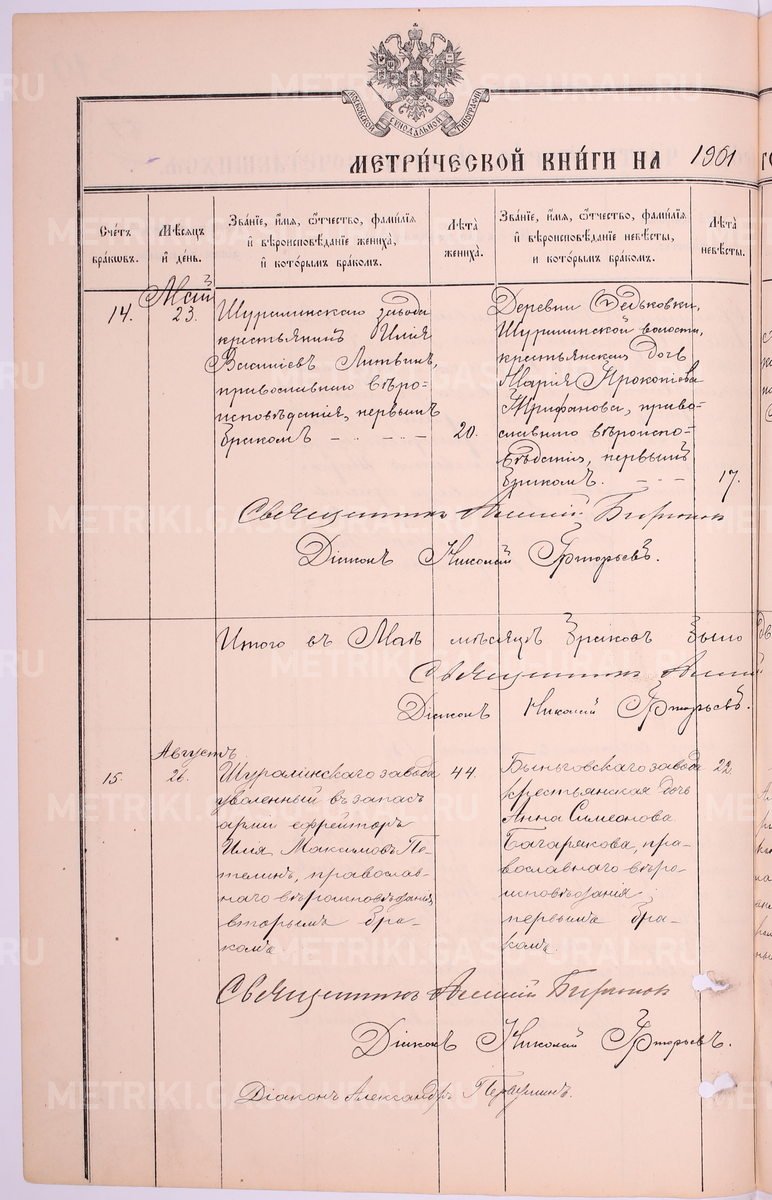 МОСКОВСКОЙ СѴНОДАЛЬНОЙ ТИПОГРАФІИ
МЕТРИ́ЧЕСКОЙ КНИ́ГИ НА 1901
Сче́тъ бра́кωвъ.
Мѣ́сяцъ и҆ де́нь.
Зва́нїе, и҆́мѧ, ѻ҆́тчество, фами́лїѧ и҆ вѣроисповѣ́данїе жениха̀, и҆ кото́рымъ бра́комъ.
Лѣ̑та жениха̀.
Зва́нїе, и҆́мѧ, ѻ҆́тчество, фами́лїѧ и҆ вѣроисповѣ́данїе невѣ́сты, и҆ кото́рымъ бра́комъ.
Лѣ̑та невѣ́сты.
14.
Май
23.
Шуралинскаго завода
крестьянинъ Илія
Василіевъ Литвинъ,
православнаго вѣро-
исповѣданія, первымъ
бракомъ
20.
Деревни Ѳедьковки,
Шуралинской волости,
крестьянская дочь
Марія Прокопіева
Трифанова, право-
славнаго вѣроиспо-
вѣданія, первымъ
бракомъ.
17.
Священникъ Алексій Бирюков
Діаконъ Николай Григорьевъ.
Итого въ Маѣ мѣсяцѣ браковъ было
Священникъ Алексій
Діаконъ Николай Григорьевъ.
15.
Августъ
26.
Шуралинскаго завода
уволенный въ запасъ
арміи ефрейторъ
Илія Максимовъ Пе-
телинъ, православ-
наго вѣроисповѣданія,
вторымъ бра-
комъ.
44.
Быньговскаго завода
крестьянская дочь
Анна Симеонова
Багарякова, пра-
вославнаго вѣро-
исповѣданія
первымъ бра-
комъ.
22.
Священникъ Алексій Бирюков
Діаконъ Николай Григорьевъ.
Діаконъ Александръ Первушинъ.
METRIKI.GASO-URAL.RU